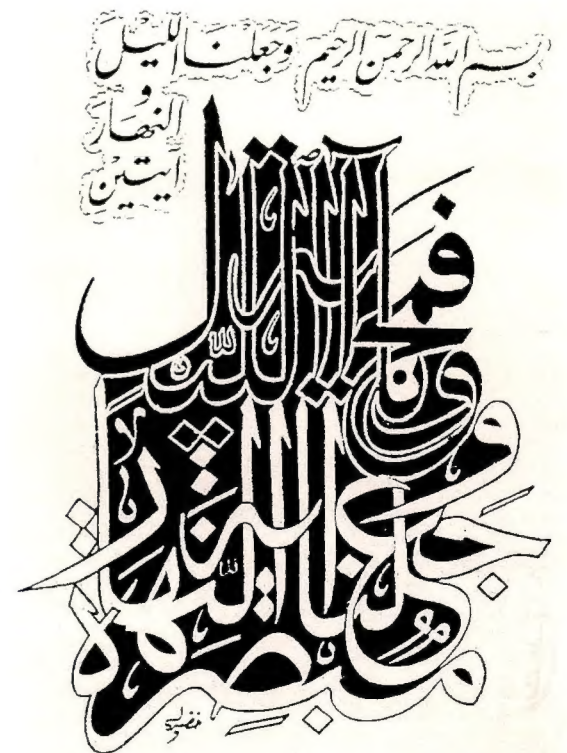 بسم الله الرحمن الرحيم وَجَعَلْنَا الليْلَ
و
النهارَ
آيتَيْنِ
فمحونا آية الليل
وجعلنا آية النهار
مبصرة